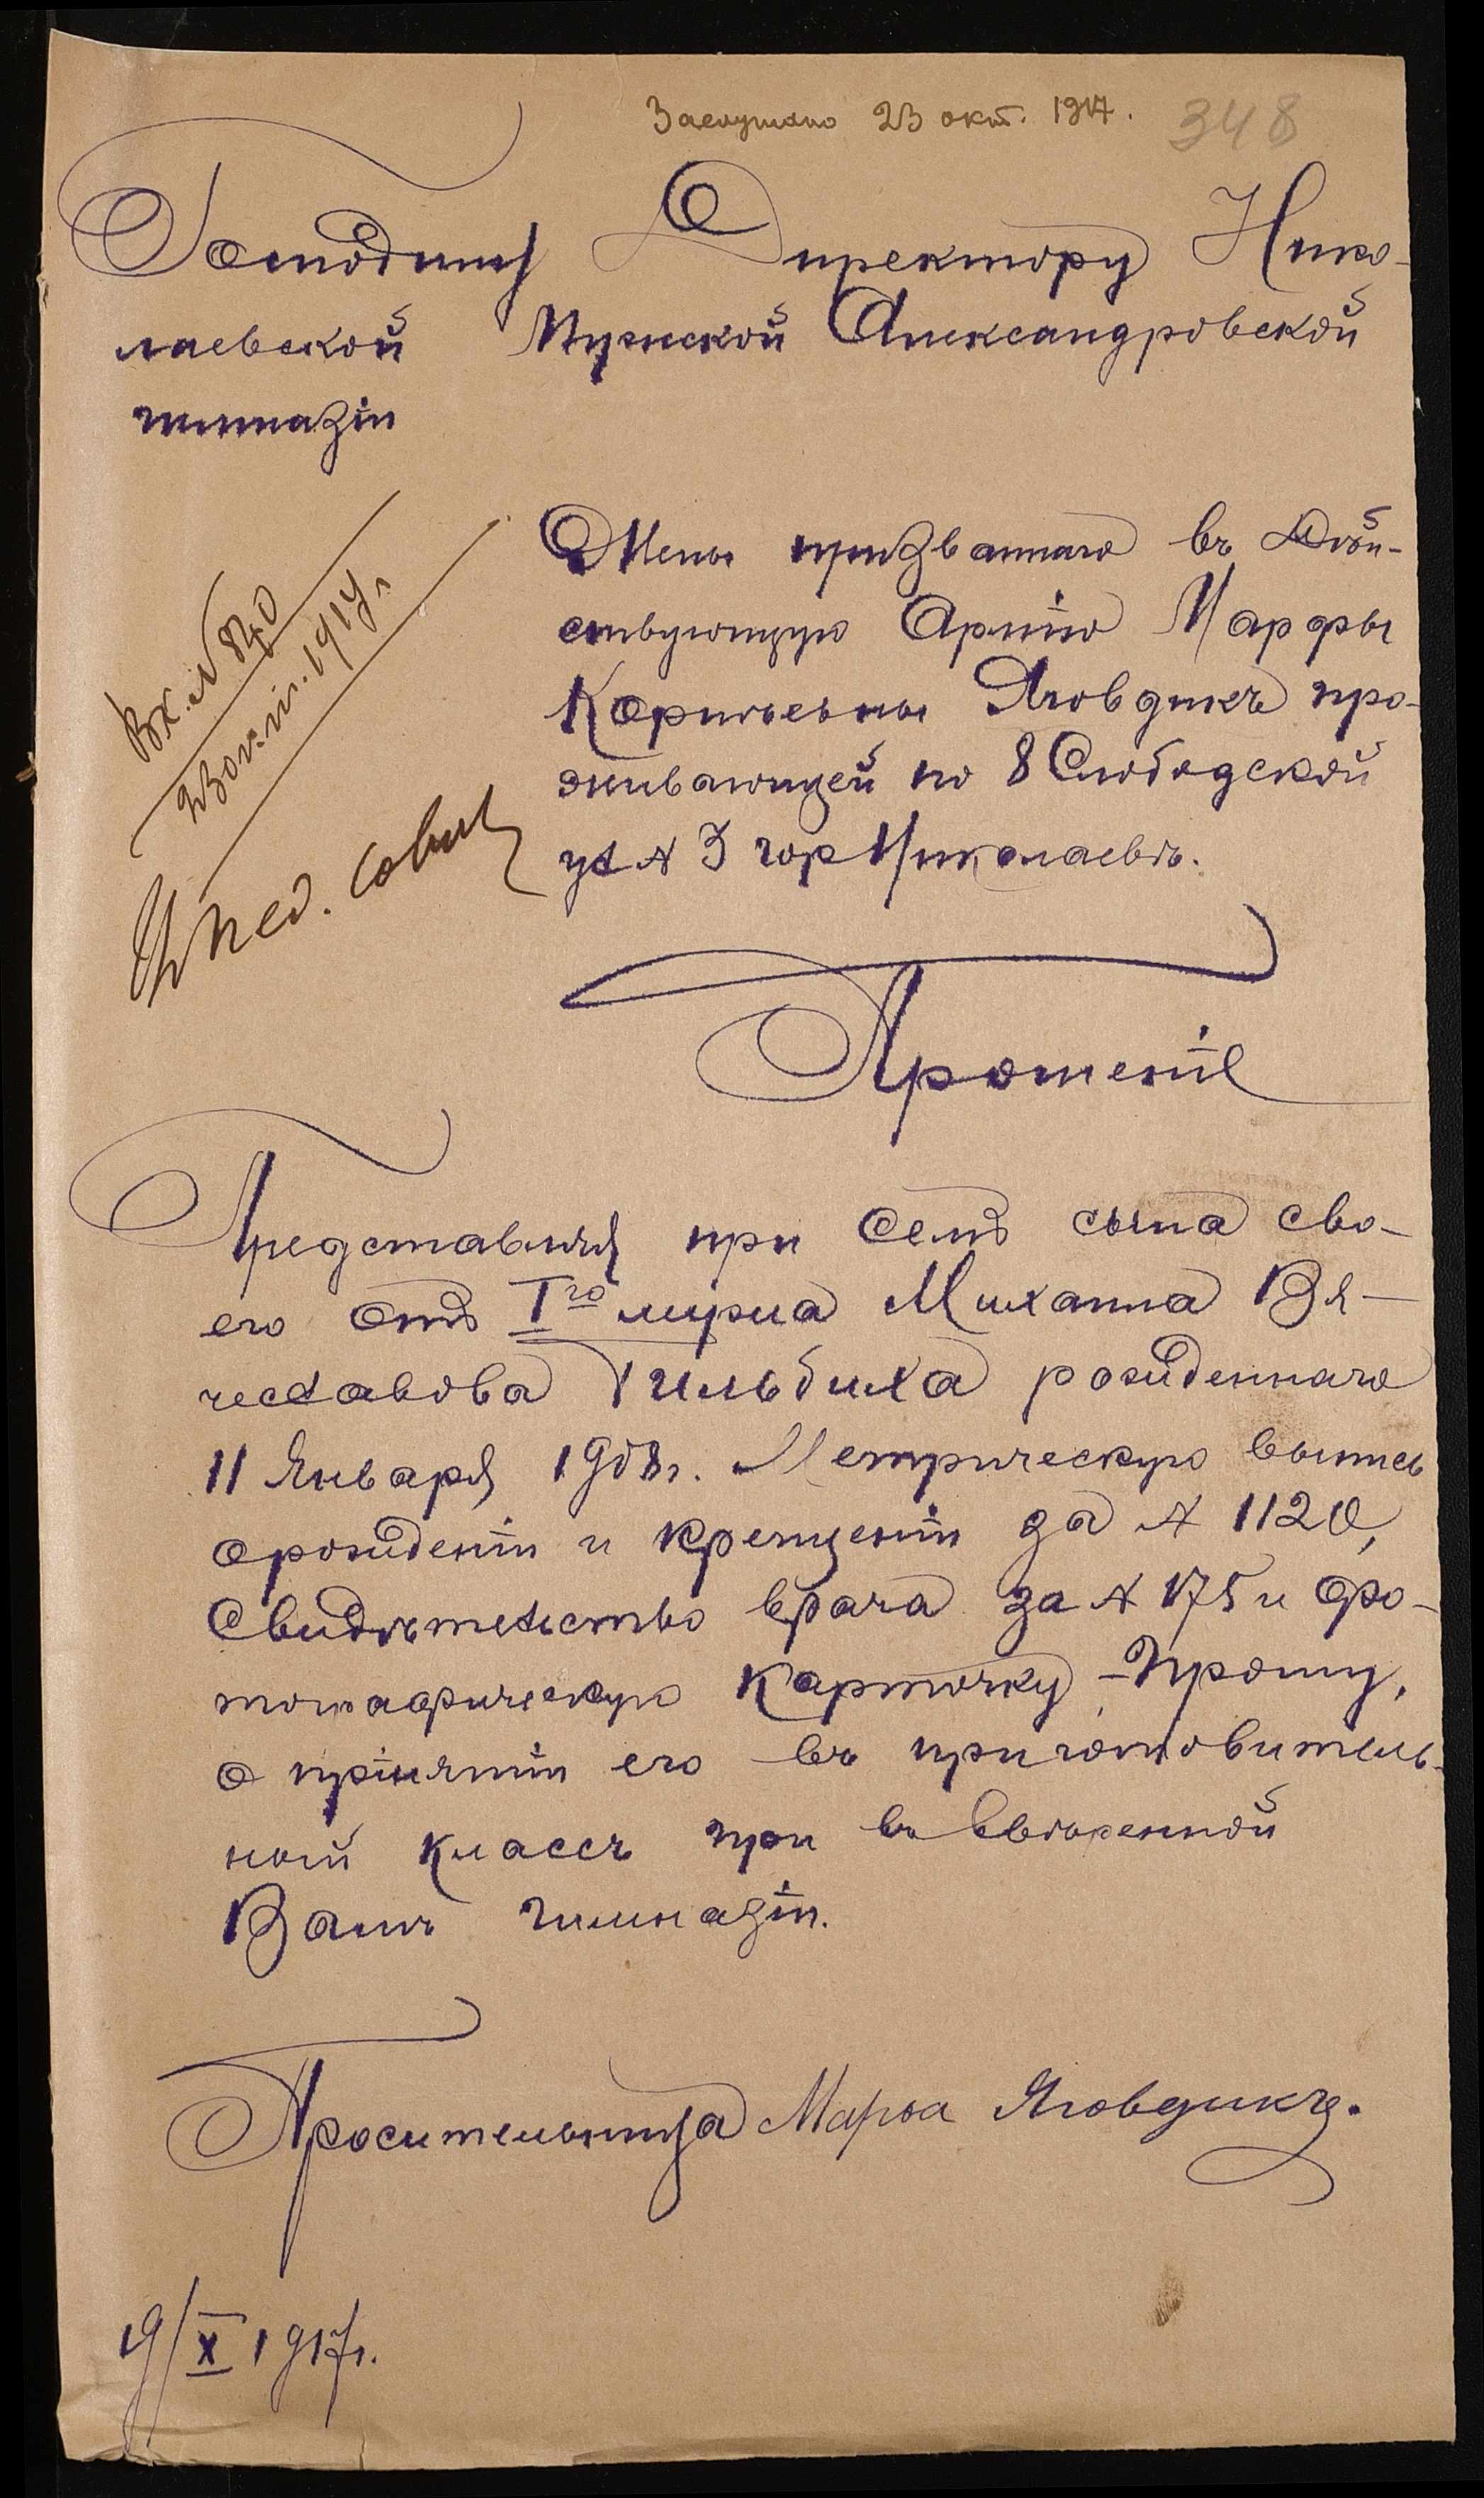 Заслушано 23 окт. 1917.
348
Господину Директору Нико-
лаевской Мужской Александровской
гимназіи
Вх. № 840
23 окт. 1917 г.
Въ пед. совѣт
Жены призваннаго въ Дѣй-
ствующую Армію Марфы
Корнѣевны Яговдикъ про-
живающей по 8 Слободской
ул № 3 гор Николаевѣ.
Прошеніе
Представляя при Семъ сына сво-
его Отъ Iго мужа Михаила Вя-
чеславова Гильбиха рожденнаго
11 Января 1908 г. Метрическую выпись
о рожденіи и крещеніи за № 1120,
Свидѣтельство врача за № 175 и фо-
тографическую Карточку – Прошу,
о принятіи его въ приготовитель-
ный классъ при въ ввѣренной
Вамъ гимназіи.
Просительница Марѳа Яговдикъ.
19/X 1917 г.